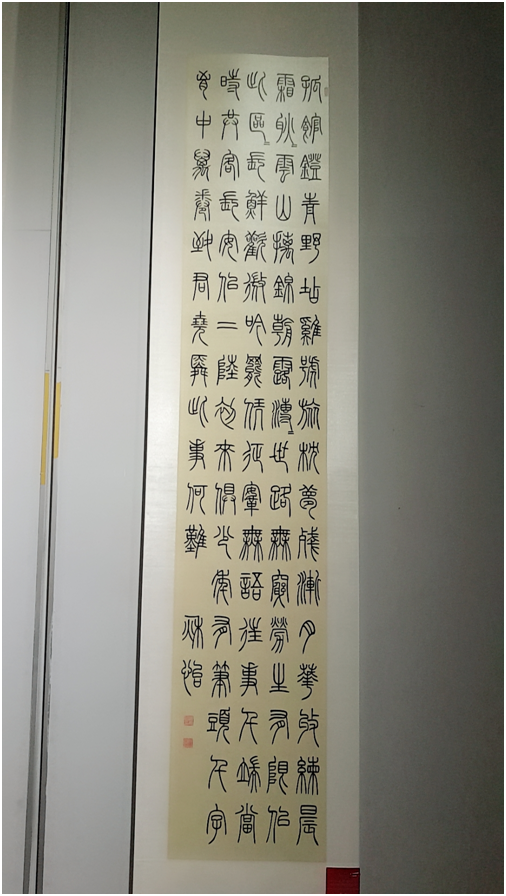 孤館鐙青野坫雞號旅枕夢殘漸月華收練晨
霜耿〓雲山摛錦朝露漙〓世路無窮勞生有限似
此區〓長鮮歡微吟罷凭征鞍無語往事千端當
時共客長安似二陸初來俱少年有筆頭千字
胸中萬卷致君堯舜此事何難